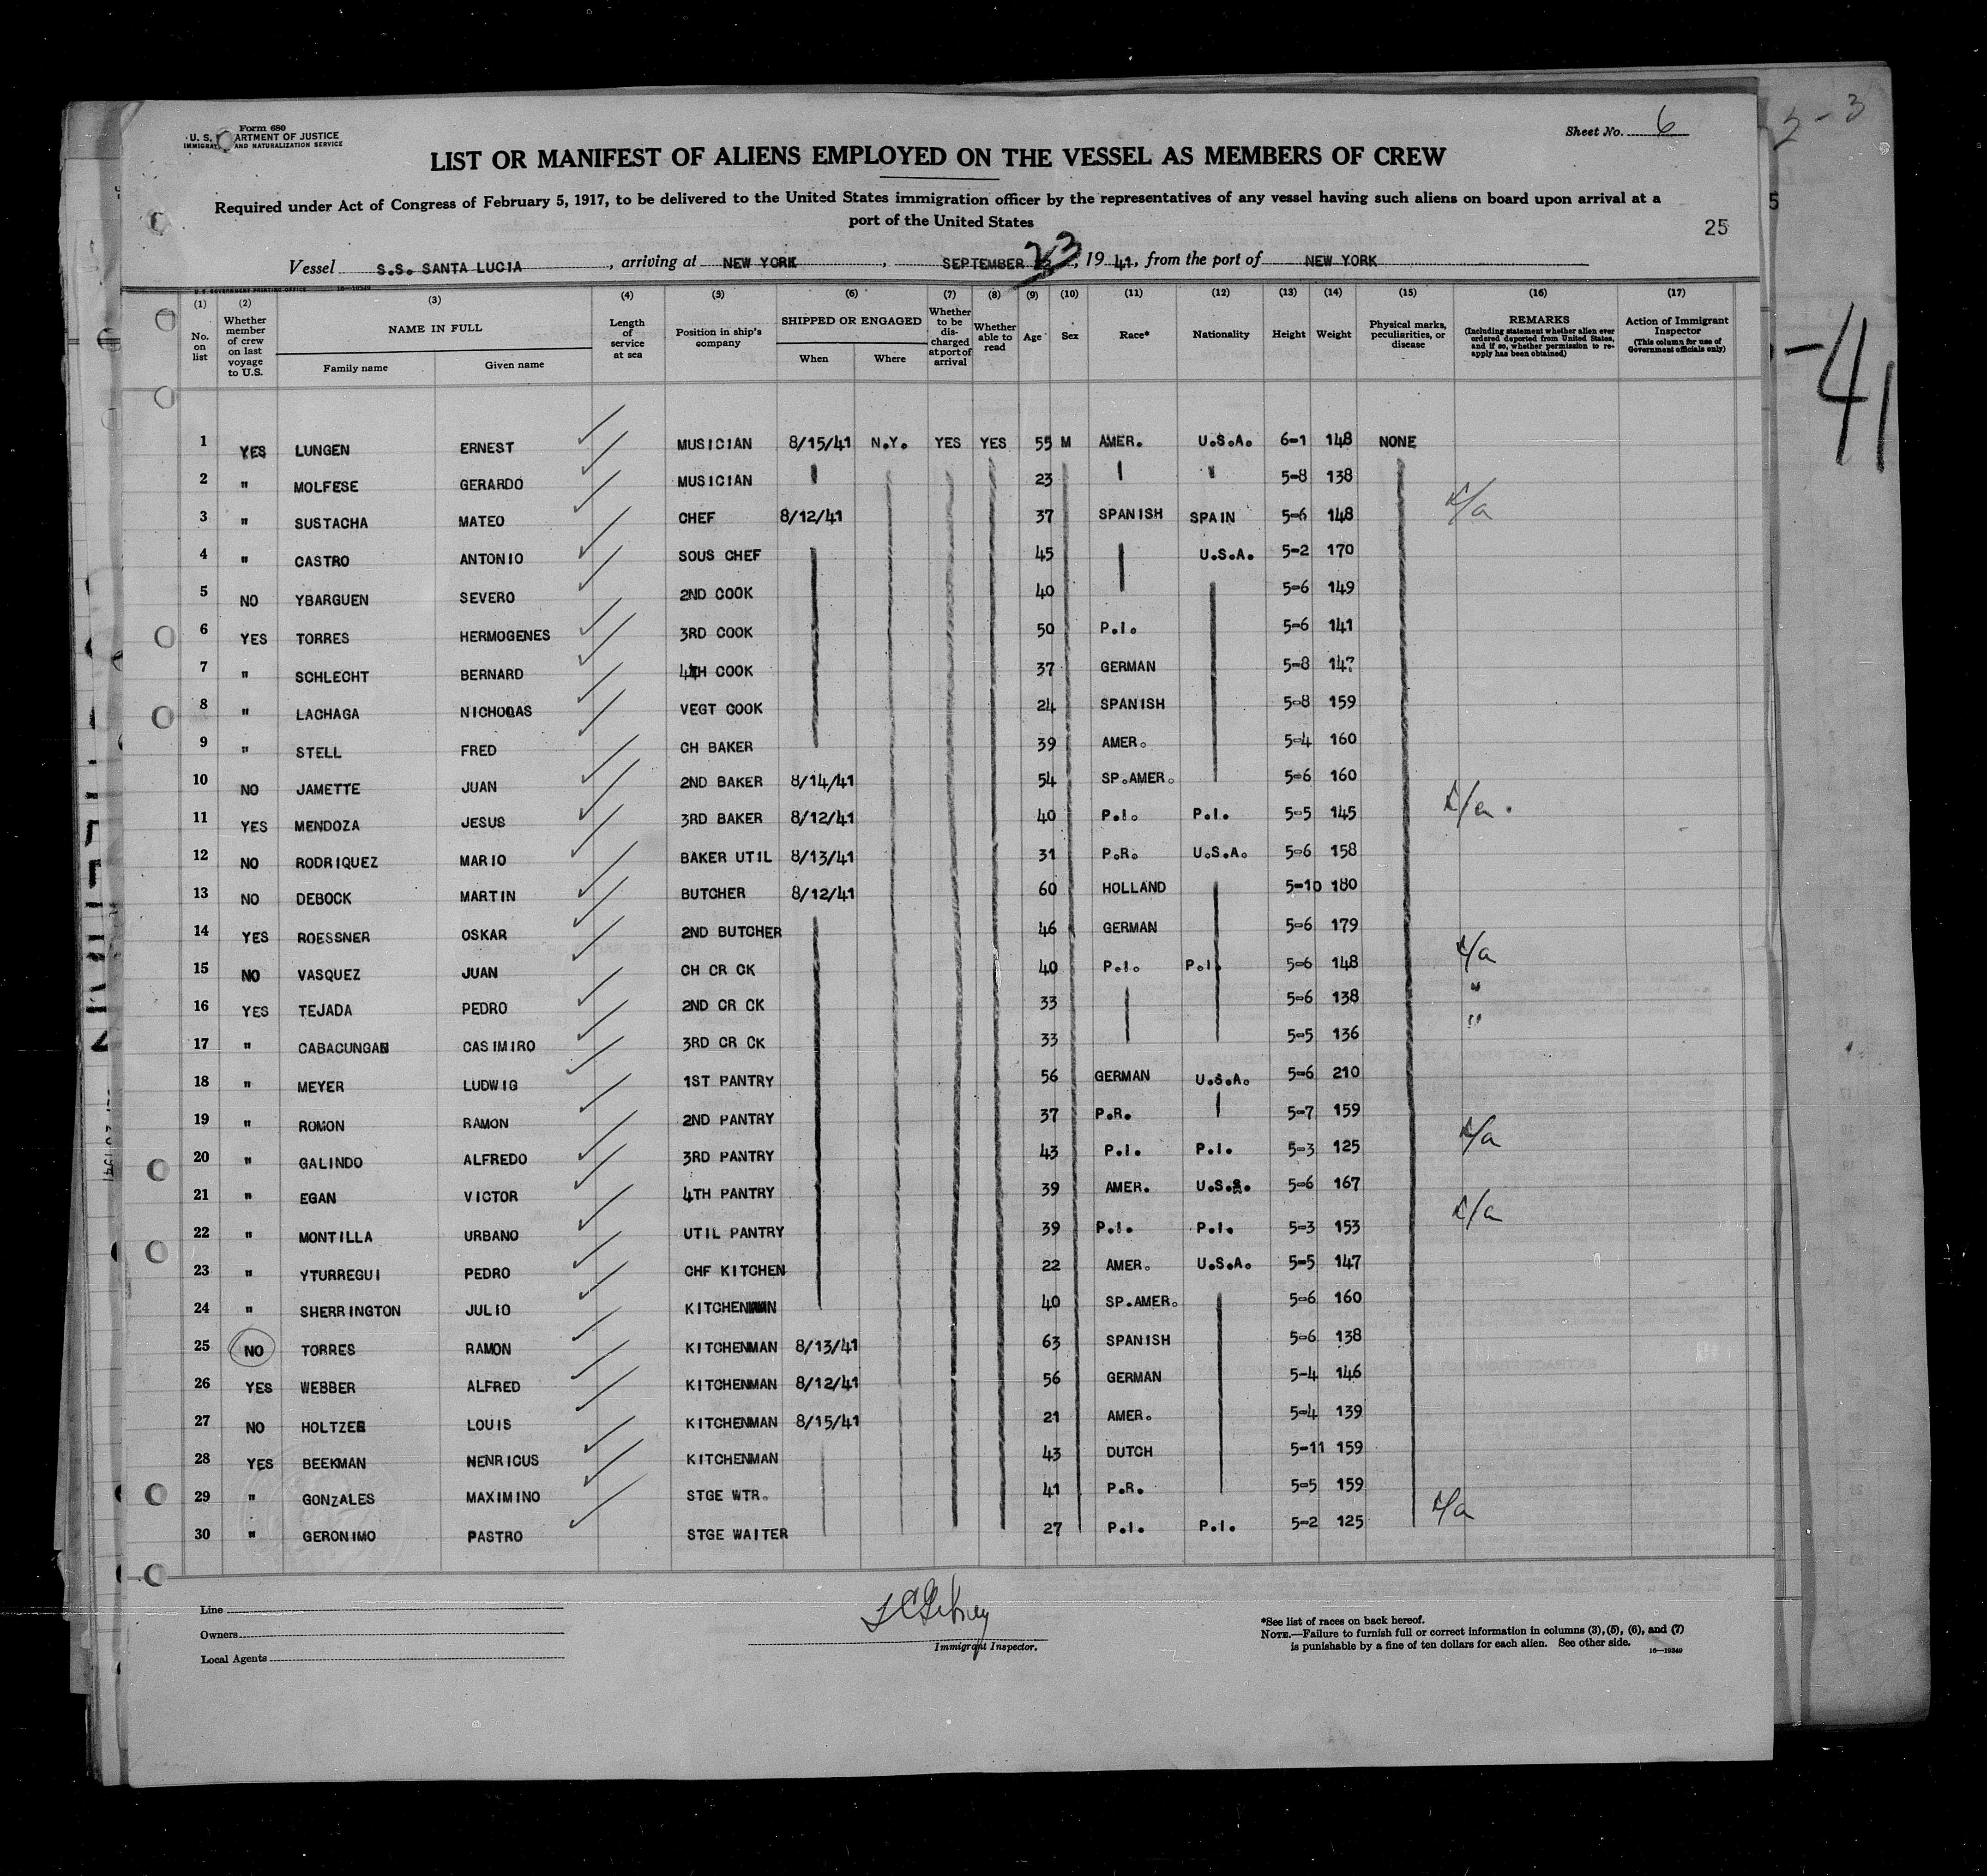 Form 680
U. S. D ARTMENT OF JUSTICE
IMMIGRAT AND NATURALIZATION SERVICE
Sheet No. 6
LIST OR MANIFEST OF ALIENS EMPLOYED ON THE VESSEL AS MEMBERS OF CREW
Required under Act of Congress of February 5, 1917, to be delivered to the United States immigration officer by the representatives of any vessel having such aliens on board upon arrival at a
port of the United States
25
Vessel S.S. SANTA LUCIA, arriving at NEW YORK, SEPTEMBER 23, 1941, from the port of NEW YORK
U. S. GOVERNMENT PRINTING OFFICE 16—19349
(1) (2) (3) (4) (5) (6) (7) (8) (9) (10) (11) (12) (13) (14) (15) (16) (17)
No. on list
Whether member of crew on last voyage to U.S.
NAME IN FULL
Family name
Given name
Length of service at sea
Position in ship's company
SHIPPED OR ENGAGED
When
Where
Whether to be discharged at port of arrival
Whether able to read
Age
Sex
Race*
Nationality
Height
Weight
Physical marks, peculiarities, or disease
REMARKS
(Including statement whether alien ever ordered deported from United States, and if so, whether permission to reapply has been obtained)
Action of Immigrant Inspector
(This column for use of Government officials only)
1 YES LUNGEN ERNEST MUSICIAN 8/15/41 N.Y. YES YES 55 M AMER. U.S.A. 6-1 148 NONE
2 " MOLFESE GERARDO MUSICIAN 23 5-8 138
3 " SUSTACHA MATEO CHEF 8/12/41 37 SPANISH SPAIN 5-6 148
4 " CASTRO ANTONIO SOUS CHEF 45 U.S.A. 5-2 170
5 NO YBARGUEN SEVERO 2ND COOK 40 5-6 149
6 YES TORRES HERMOGENES 3RD COOK 50 P.I. 5-6 141
7 " SCHLECHT BERNARD 4TH COOK 37 GERMAN 5-8 147
8 " LACHAGA NICHOLAS VEGT COOK 24 SPANISH 5-8 159
9 " STELL FRED CH BAKER 39 AMER. 5-4 160
10 NO JAMETTE JUAN 2ND BAKER 8/14/41 54 SP.AMER. 5-6 160
11 YES MENDOZA JESUS 3RD BAKER 8/12/41 40 P.I. P.I. 5-5 145
12 NO RODRIQUEZ MARIO BAKER UTIL 8/13/41 31 P.R. U.S.A. 5-6 158
13 NO DEBOCK MARTIN BUTCHER 8/12/41 60 HOLLAND 5-10 180
14 YES ROESSNER OSKAR 2ND BUTCHER 46 GERMAN 5-6 179
15 NO VASQUEZ JUAN CH CR CK 40 P.I. P.I. 5-6 148
16 YES TEJADA PEDRO 2ND CR CK 33 5-6 138 "
17 " CABACUNGAN CASIMIRO 3RD CR CK 33 5-5 136 "
18 " MEYER LUDWIG 1ST PANTRY 56 GERMAN U.S.A. 5-6 210
19 " ROMON RAMON 2ND PANTRY 37 P.R. 5-7 159
20 " GALINDO ALFREDO 3RD PANTRY 43 P.I. P.I. 5-3 125
21 " EGAN VICTOR 4TH PANTRY 39 AMER. 5-6 167
22 " MONTILLA URBANO UTIL PANTRY 39 P.I. P.I. 5-3 153
23 " YTURREGUI PEDRO CHF KITCHEN 22 AMER. U.S.A. 5-5 147
24 " SHERRINGTON JULIO KITCHENMAN 40 SP.AMER. 5-6 160
25 NO TORRES RAMON KITCHENMAN 8/13/41 63 SPANISH 5-6 138
26 YES WEBBER ALFRED KITCHENMAN 8/12/41 56 GERMAN 5-4 146
27 NO HOLTZER LOUIS KITCHENMAN 8/15/41 21 AMER. 5-4 139
28 YES BEEKMAN HENRICUS KITCHENMAN 43 DUTCH 5-11 159
29 " GONZALES MAXIMINO STGE WTR. 41 P.R. 5-5 159
30 " GERONIMO PASTRO STGE WAITER 27 P.I. P.I. 5-2 125
Line
Owners
Local Agents
Immigrant Inspector.
*See list of races on back hereof.
NOTE.—Failure to furnish full or correct information in columns (3), (5), (6), and (7)
is punishable by a fine of ten dollars for each alien. See other side.
16—19349
-41